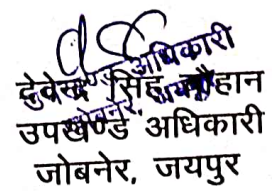 देवेन्द्र सिंह चौहान
उपखण्ड अधिकारी
जोबनेर, जयपुर
अधिकारी
जोबनेर,